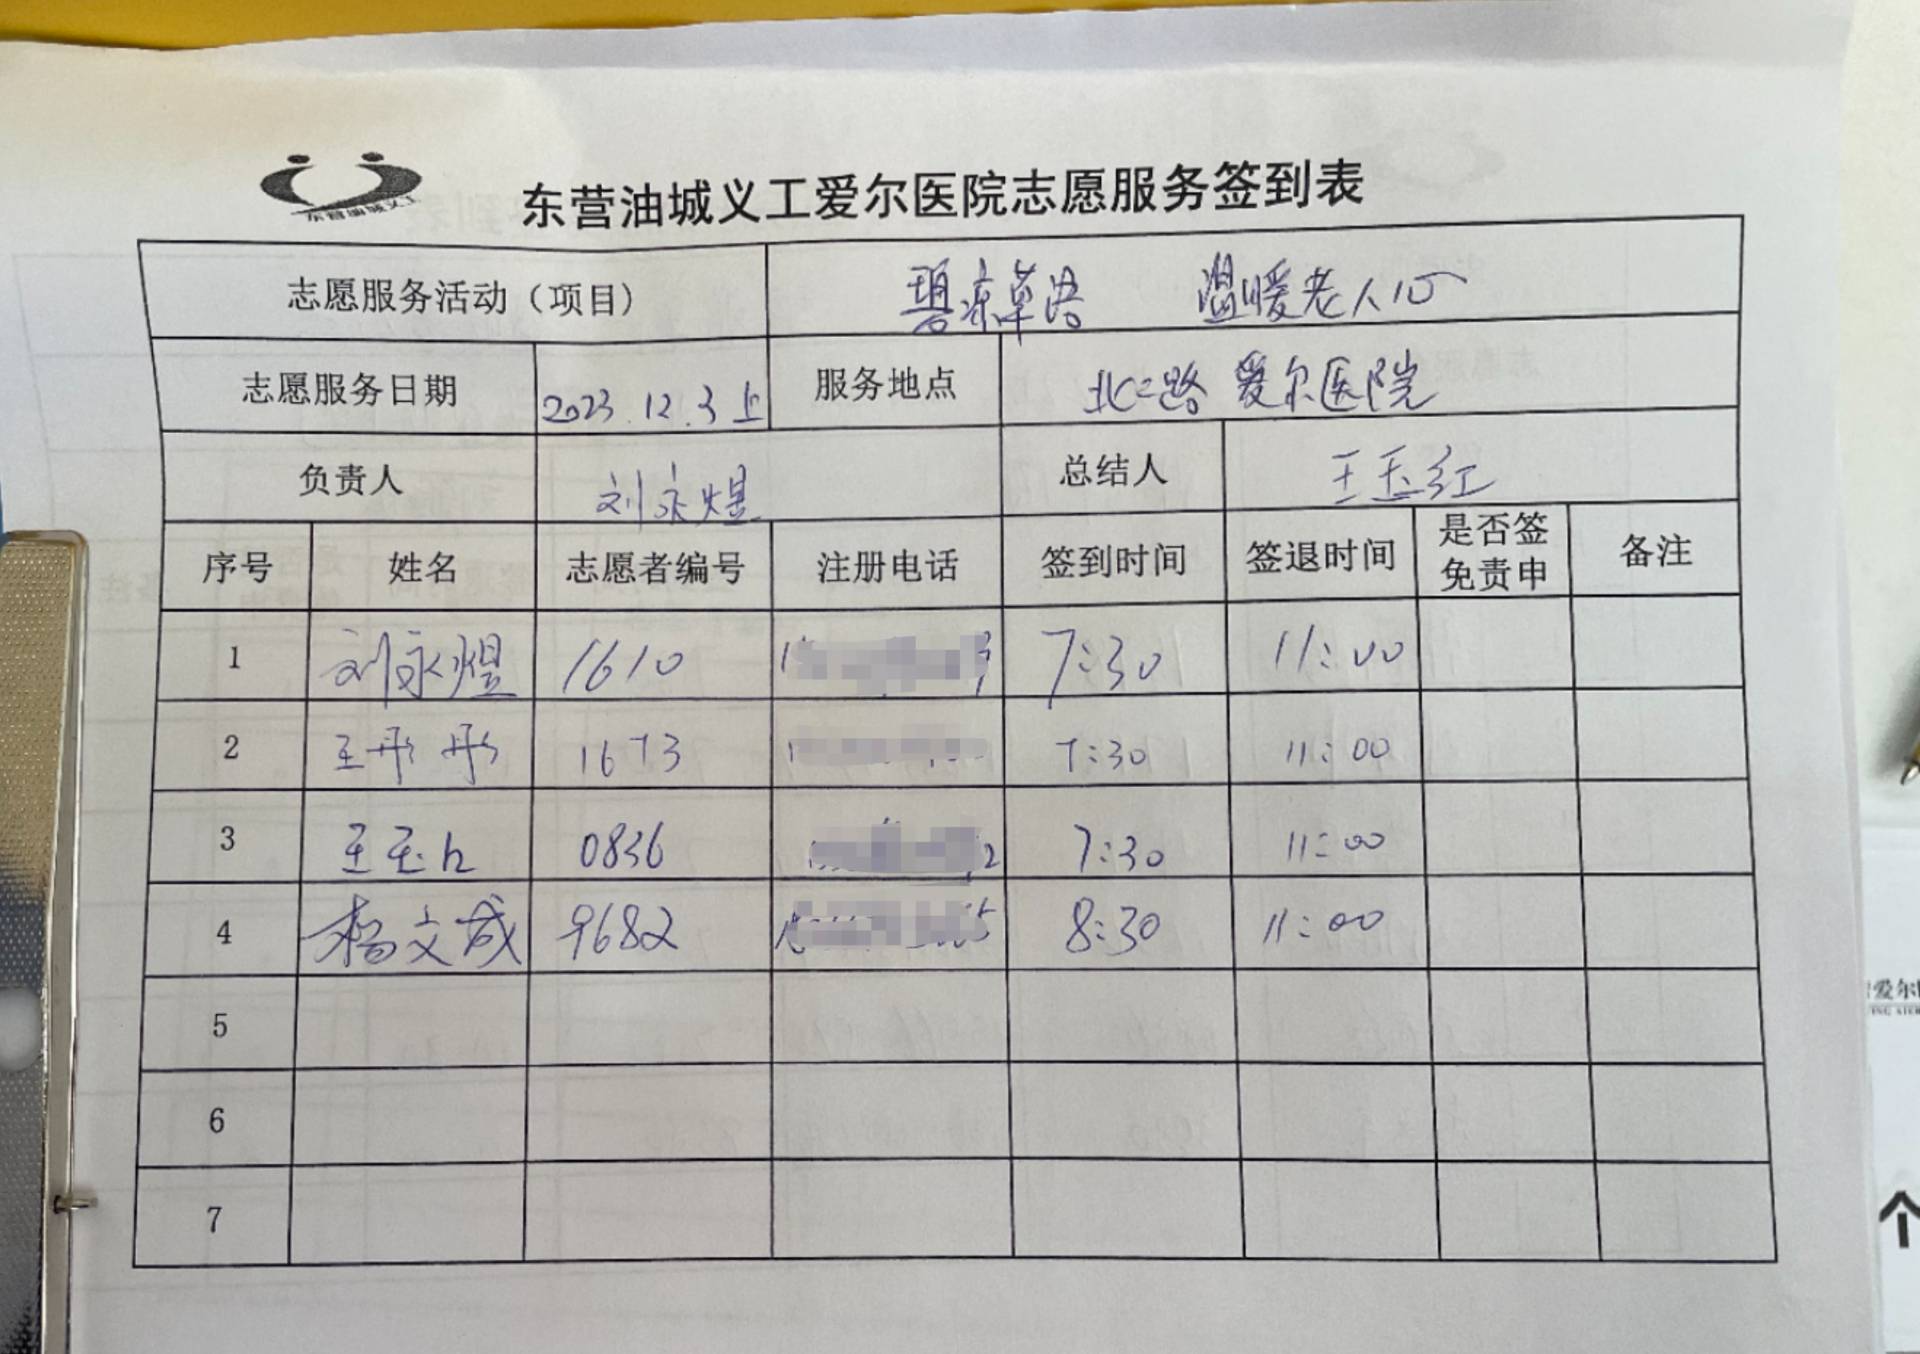 东营油城义工
东营油城义工爱尔医院志愿服务签到表
志愿服务活动（项目） 温暖老人行
志愿服务日期 2023.12.3上 服务地点 北二路 爱尔医院
负责人 刘永煜 总结人 王玉红
序号 姓名 志愿者编号 注册电话 签到时间 签退时间 是否签 备注
免责申
1 刘永煜 1610 7:30 11:00
2 王彤彤 1673 7:30 11:00
3 王玉红 0836 7:30 11:00
4 杨文成 9682 8:30 11:00
5
6
7
爱尔
个